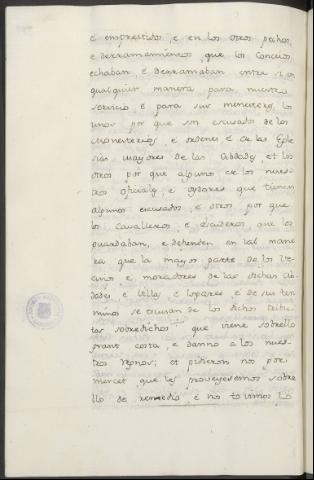 é emprestidos, é en los otros pechos,
é derramamientos, que los Concejos
echaban, é derramaban entre si, en
qualquier manera para nuestro
servicio é para sus menesteres, los
unos por que son escusados de los
Monesterios, é ordenes é de las Egle
sias mayores de las Cibdades, et los
otros por que algunos de los nues
tros oficiales é oydores que tienen
algunos escusados, é otros por que
los Cavalleros, é Escuderos, que los
guardaban, é defienden en tal mane
ra que la mayor parte de los Ve
cinos, é moradores de las dichas Cib
dades é Villas, é logares é de sus ter
minos se escusan de los dichos tribu
tos sobredichos, que viene sobrello
grant costa, é danno a los nues
tros regnos; et pidieron nos por
mercet que les proveyesemos sobre
llo de remedio, é nos tovimos lo